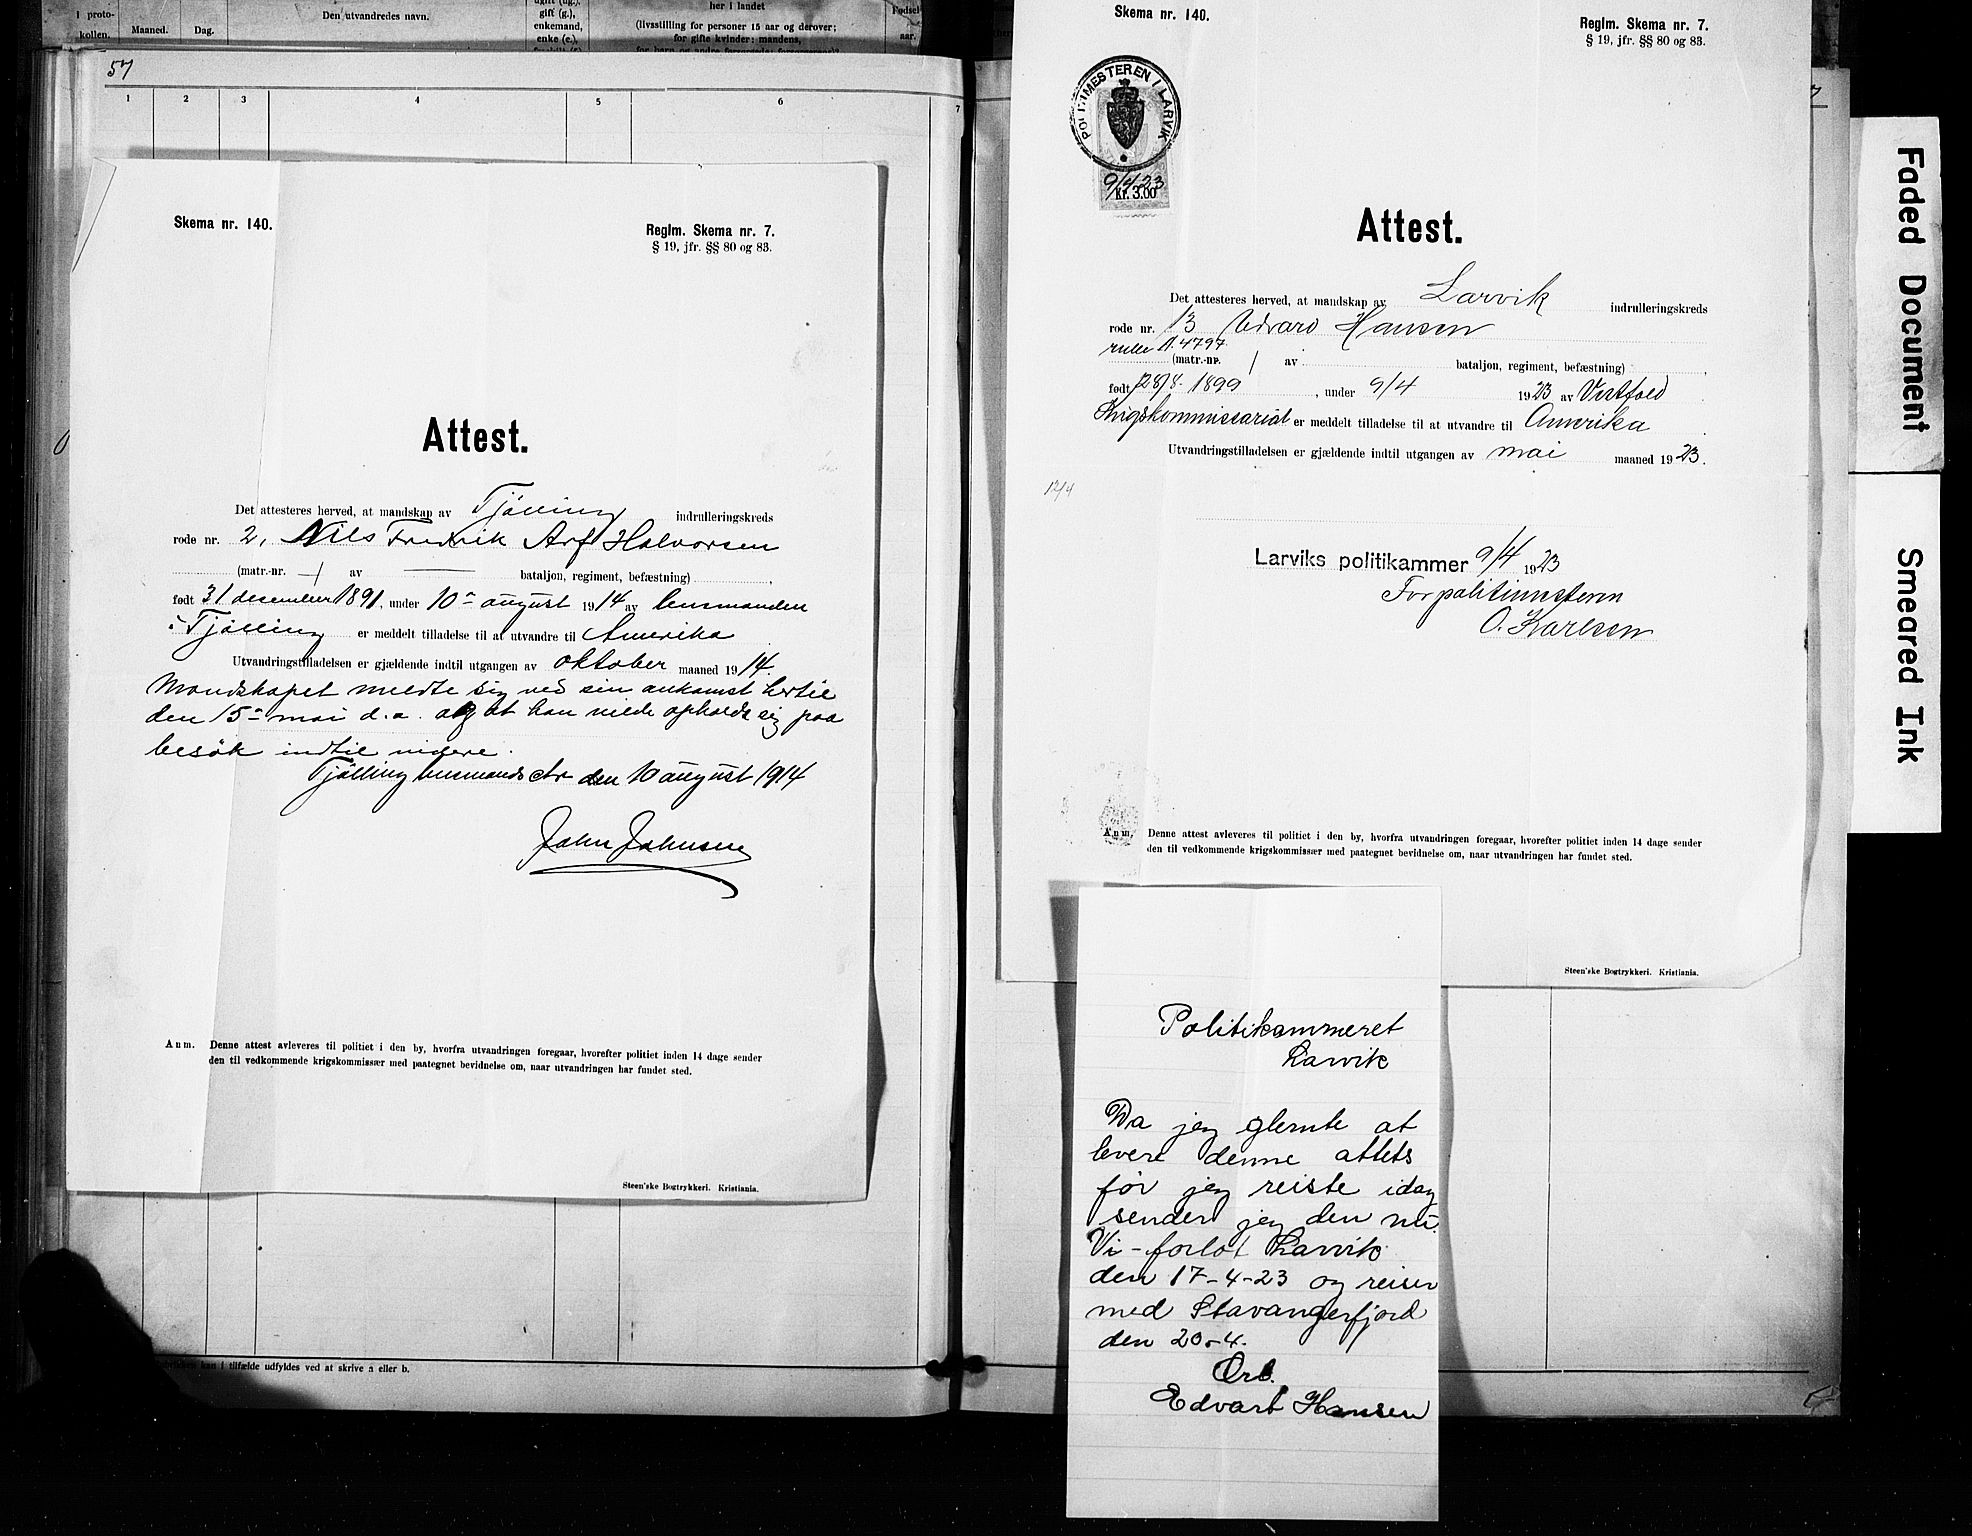 i proto-
kollen.
Maaned.
Dag.
Den utvandredes navn.
gift (g.),
enkemand,
enke (e.),
her i landet
(livsstilling for personer 15 aar og derover;
for gifte kvinder: mandens,
Fødsel
aar.
57
1 2 3 4 5 6 7
Skema nr. 140.
Reglm. Skema nr. 7.
§ 19, jfr. §§ 80 og 83.
Attest.
Det attesteres herved, at mandskap av Tjölling indrulleringskreds
rode nr. 2, Nils Fredrik Arf Halvorsen
(matr.-nr. — / av — bataljon, regiment, befæstning)
født 31 desember 1891, under 10 august 1914 av lensmanden
i Tjölling er meddelt tilladelse til at utvandre til Amerika
Utvandringstilladelsen er gjældende indtil utgangen av oktober maaned 1914.
Mandskapet meldte sig ved sin ankomst hertil
den 15 mai d.a. og at han vilde opholde sig paa
besök indtil videre.
Tjölling lensmands den 10 august 1914
John Johnsen
Anm. Denne attest avleveres til politiet i den by, hvorfra utvandringen foregaar, hvorefter politiet inden 14 dage sender
den til vedkommende krigskommissær med paategnet bevidnelse om, naar utvandringen har fundet sted.
Steen'ske Bogtrykkeri. Kristiania.
kan i tilfælde utfyldes ved at skrive a eller b.
Skema nr. 140.
Reglm. Skema nr. 7.
§ 19, jfr. §§ 80 og 83.
POLITIMESTEREN I LARVIK
9/4 23
Kr. 3.00
Attest.
Det attesteres herved, at mandskap av Larvik indrulleringskreds
rode nr. 13 Edvard Hansen
rulle n. 4797
(matr.-nr. / av bataljon, regiment, befæstning)
født 28/8. 1899, under 9/4 1923 av Vestfold
Krigskommissariat er meddelt tilladelse til at utvandre til Amerika
Utvandringstilladelsen er gjældende indtil utgangen av mai maaned 1923.
17/4
Larviks politikammer 9/4 1923
For politimesteren
O. Karlsen
Anm. Denne attest avleveres til politiet i den by, hvorfra utvandringen foregaar, hvorefter politiet inden 14 dage sender
den til vedkommende krigskommissær med paategnet bevidnelse om, naar utvandringen har fundet sted.
Steen'ske Bogtrykkeri. Kristiania.
Politikammeret
Larvik
Da jeg glemte at
levere denne attets
før jeg reiste idag
sender jeg den nu.
Vi forlot Larvik
den 17-4-23 og reiser
med Stavangerfjord
den 20-4.
Erb.
Edvart Hansen
Faded Document
Smeared Ink